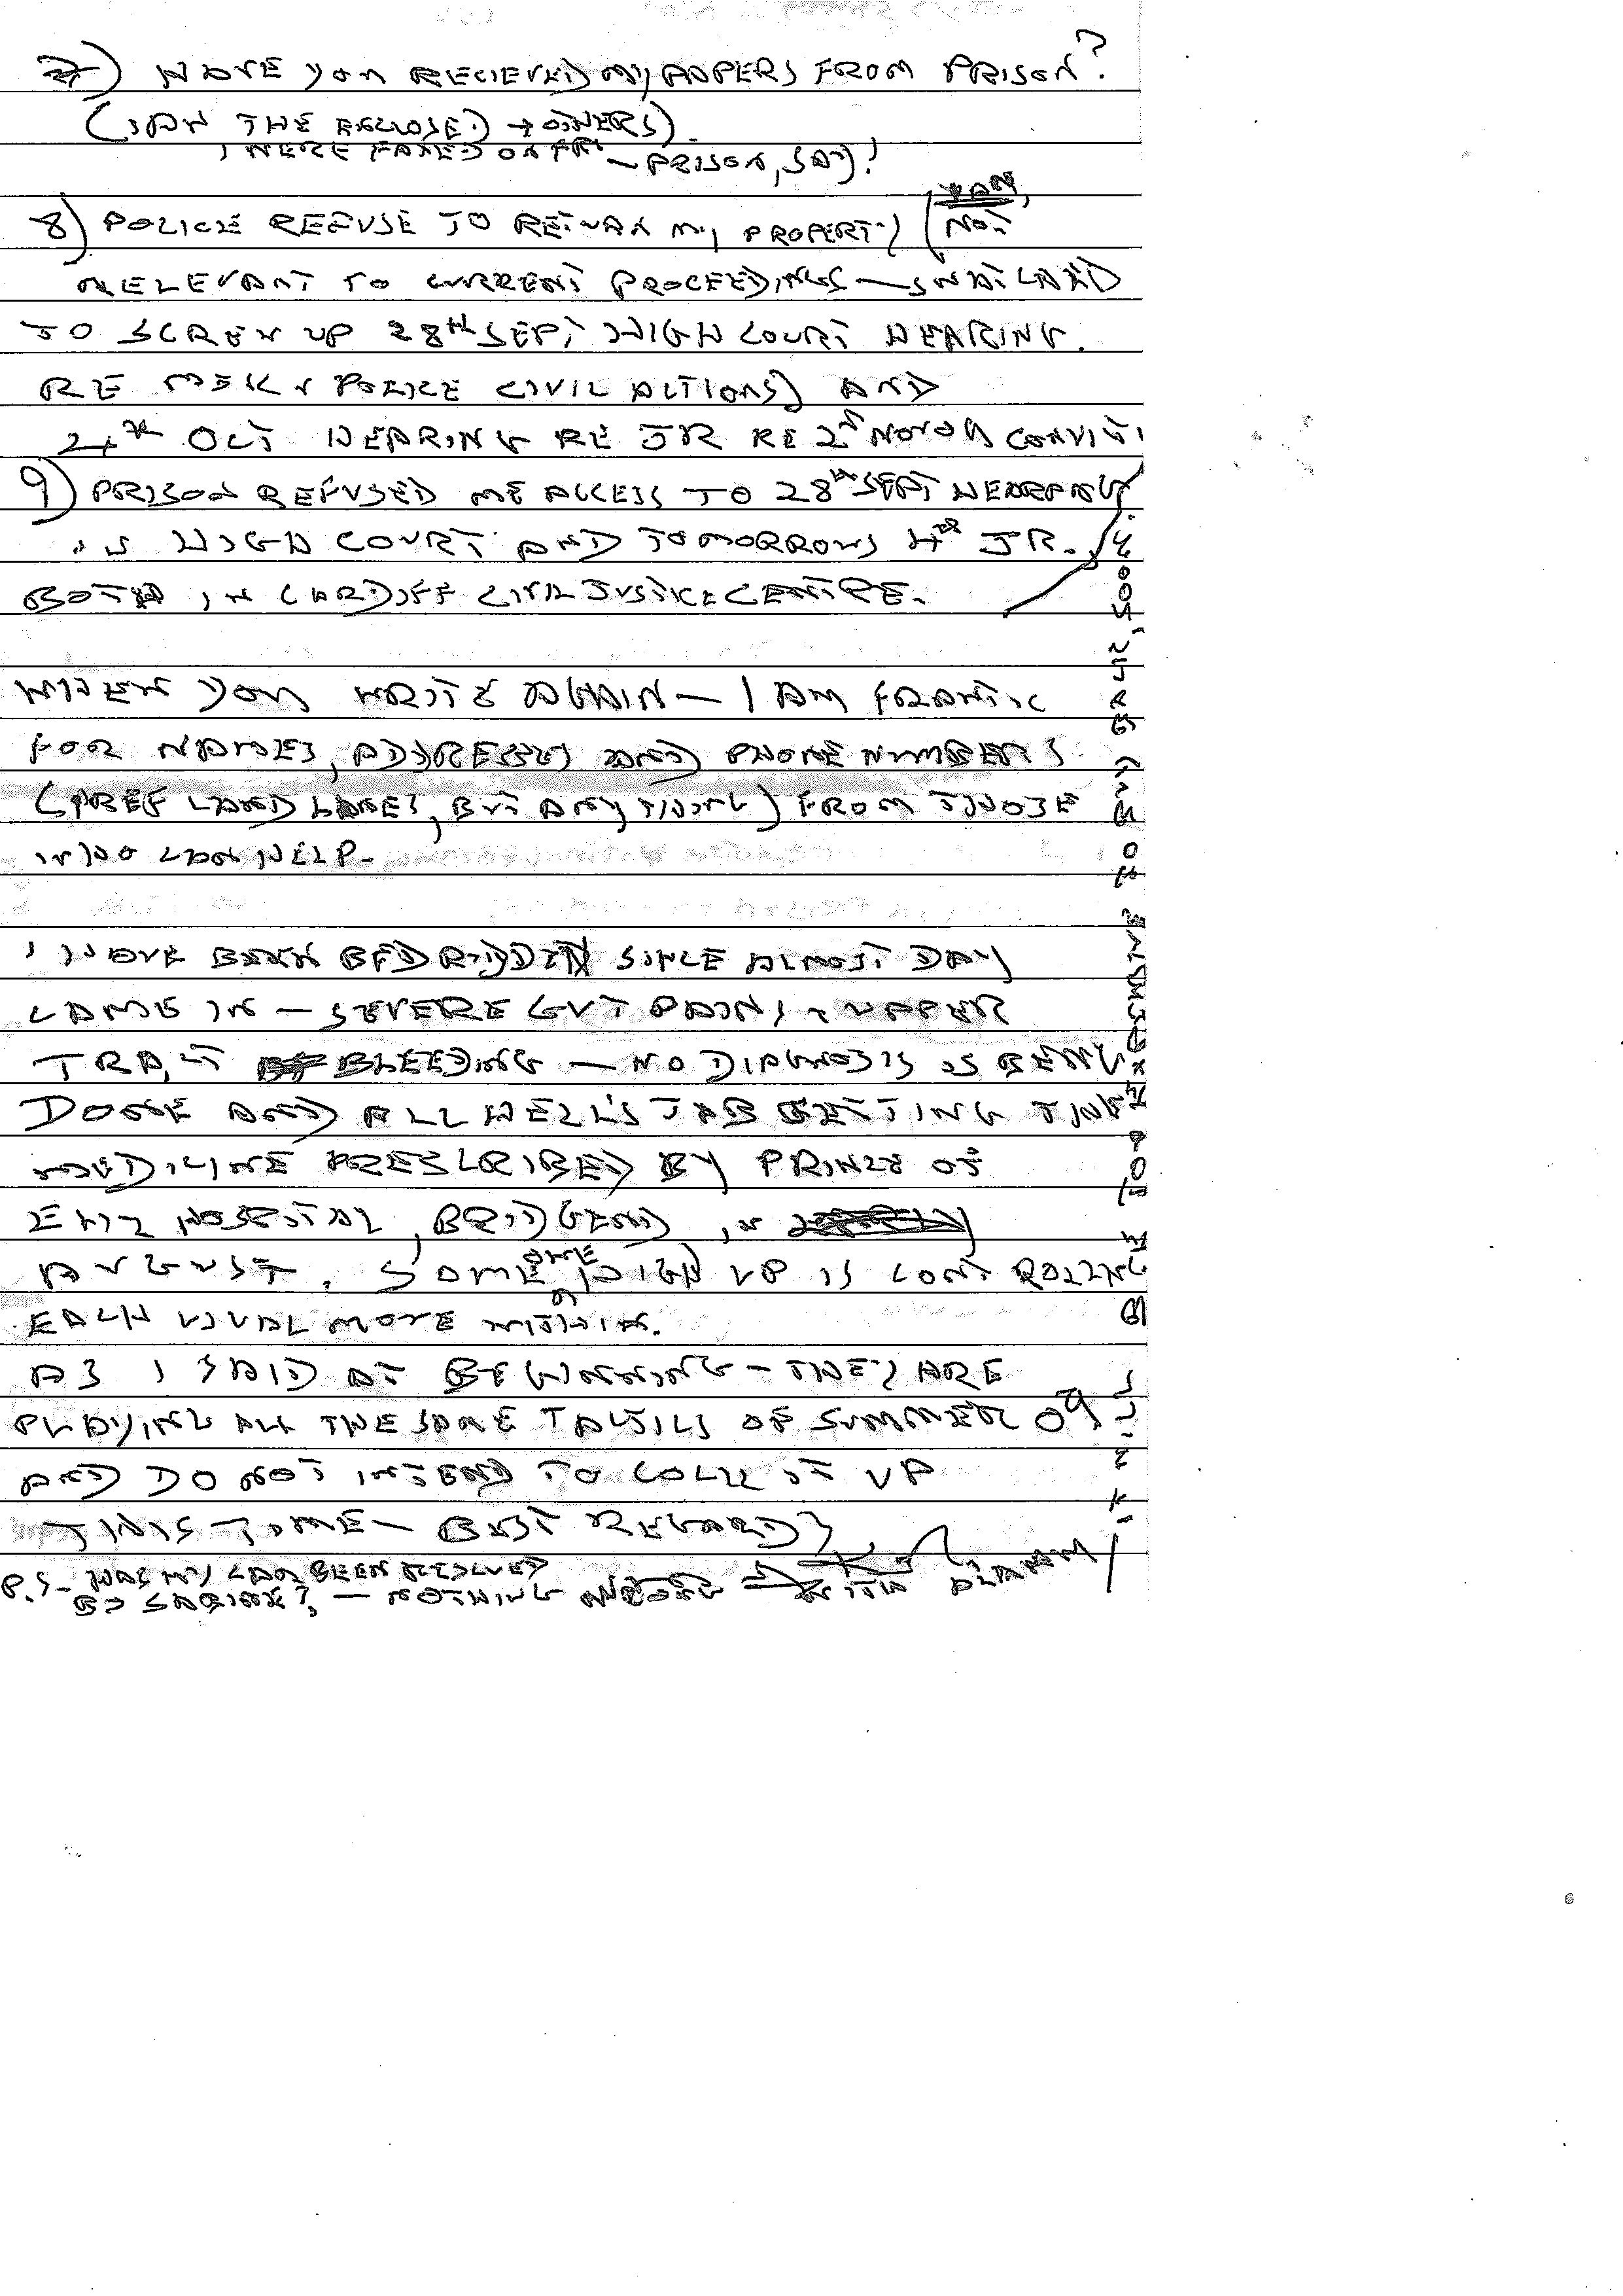 7) HAVE YOU RECIEVED MY PAPERS FROM PRISON?
(SAY THE ENCLOSED + OTHERS)
WERE FAXED ON – PRISON, SAY!
8) POLICE REFUSE TO RETURN MY PROPERTY (NOT
RELEVANT TO CURRENT PROCEEDINGS – SNATCHED
TO SCREW UP 28TH SEPT HIGH COURT HEARING.
RE POLICE CIVIL ACTIONS) AND
4TH OCT HEARING RE JR RE 2ND NOV
9) PRISON REFUSED ME ACCESS TO 28TH SEPT HEARING
IN HIGH COURT AND TOMORROWS 4TH JR.
BOTH IN CARDIFF CIVIL JUSTICE CENTRE.
WHEN YOU WRITE AGAIN – I AM FRANTIC
FOR NAMES, ADDRESSES AND PHONE NUMBERS
(PREF LAND LINES, BUT ANYTHING) FROM THOSE
WHO CAN HELP.
I HAVE BEEN BEDRIDDEN SINCE ALMOST DAY
CAME IN – SEVERE GUT PAINS + UPPER
TRACT BLEEDING – NO DIAGNOSIS IS BEING
DONE AND ALL HELL'S JOB GETTING THE
MEDICINE PRESCRIBED BY PRINCE OF
HOSPITAL, BRIDGEND, IN
AUGUST. SOMEONE HIGH UP IS CONTROLLING
EACH USUAL MOVE WITHIN.
AS I SAID AT BEGINNING – THEY ARE
PLAYING ALL THE SAME TACTICS OF SUMMER 09
AND DO NOT INTEND TO COCK IT UP
THIS TIME – BEST REGARDS
P.S – HAS MY CAR BEEN RESOLVED
BY SABINE? – NOTHING WITH